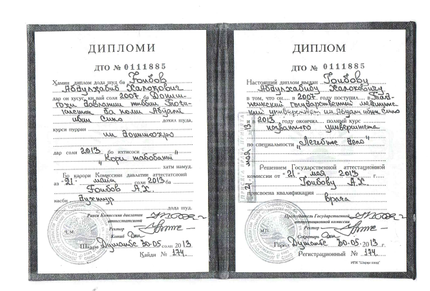 ДИПЛОМИ
ДТО № 0111885
Ҳамин диплом дода шуд ба Гоибов
Абдулҳабиб Халокович
дар он хусус, ки вай соли 2007 ба Донишгоҳи
давлатии тиббии Тоҷикистон
ба номи Абуалӣ
ибни Сино дохил шуда,
курси пурраи
ин донишгоҳро
дар соли 2013 бо ихтисоси
"Кори табобатӣ"
Бо қарори Комиссияи давлатии аттестатсионӣ
аз "21" майи 2013 ба
Гоибов А.Х.
касби Духтур
дода шуд.
Раиси Комиссияи давлатии
аттестатсионӣ
Ректор
Котиб
Шаҳри Душанбе 30.05. соли 2013
Қайди № 174
ДИПЛОМ
ДТО № 0111885
Настоящий диплом выдан Гоибову
Абдулхабибу Халоковичу
в том, что он в 2007 году поступил в
государственный медицинский
университет им. Абуали ибни Сино
и в 2013 окончил полный курс
университета
по специальности
«Лечебное дело»
Решением Государственной аттестационной
комиссии от "21" мая 2013 г.
Гоибову А.Х.
присвоена квалификация
врача
Председатель Государственной
аттестационной комиссии
Ректор
Секретарь
Город Душанбе 30.05. 2013
Регистрационный № 174